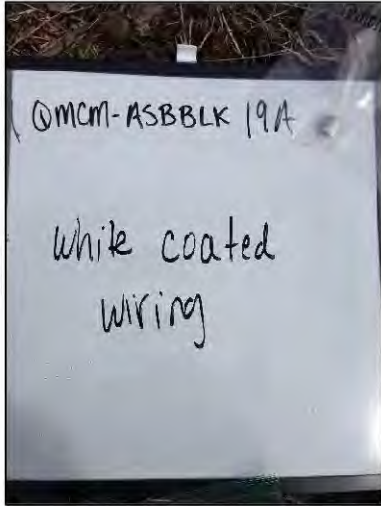 QMCM-ASBBLK 19A
White coated
wiring